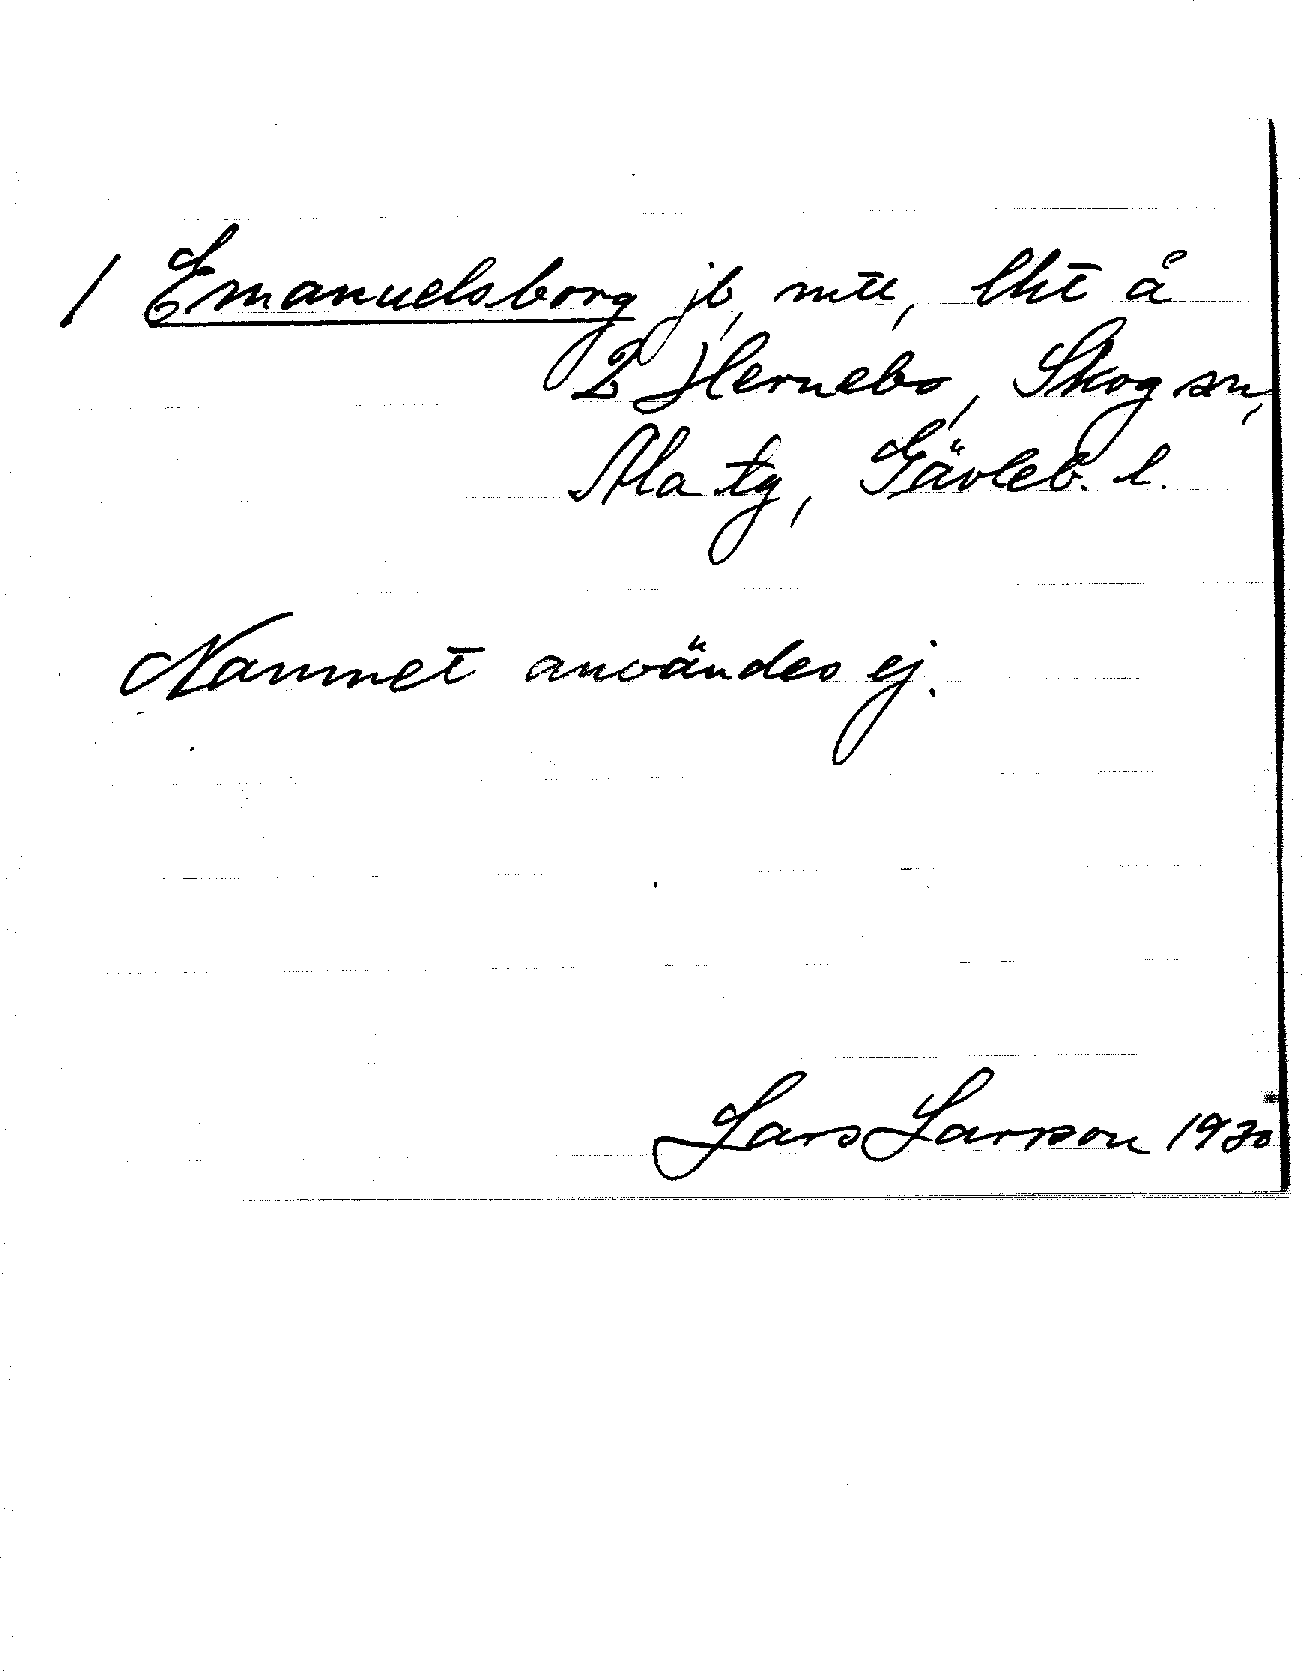 / Emanuelsborg jb, mtl, lht å
2 Hernebo, Skog sn,
Ala tg, Gävleb. l.
Namnet användes ej.
Lars Larsson 1930